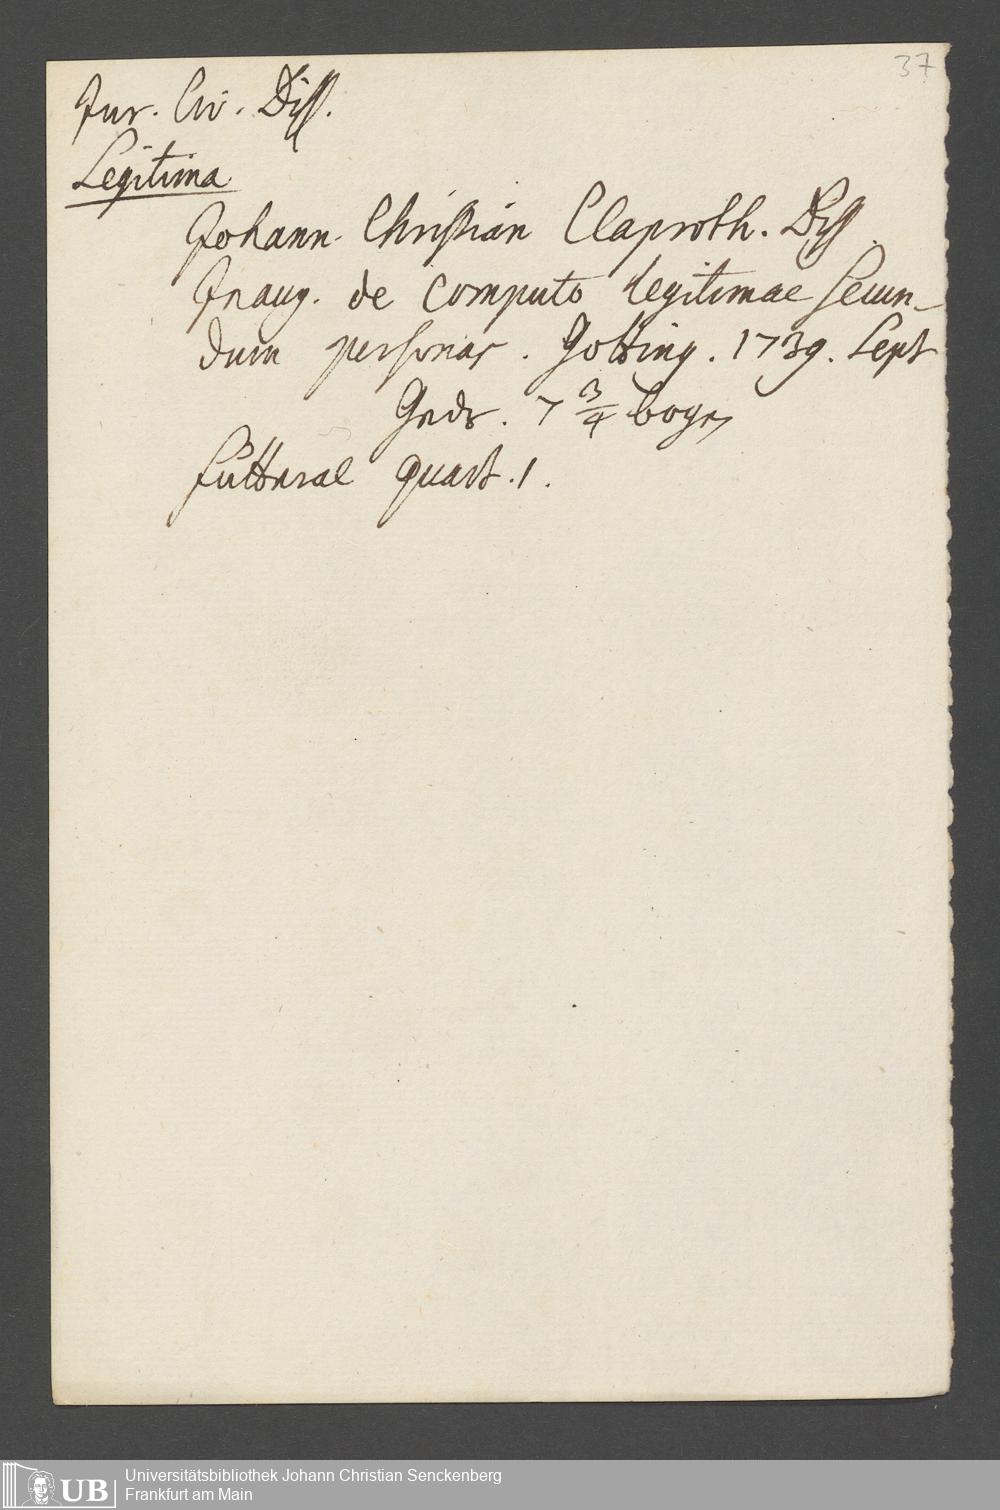 37
Jur. Civ. Diss.
Legitima
Johann Christian Claproth. Diss.
Inaug. de computo legitimae secun-
dum personas. Gotting. 1739. Sept
7 3/4 bogen
futteral quart. 1.
UB
Universitätsbibliothek Johann Christian Senckenberg
Frankfurt am Main